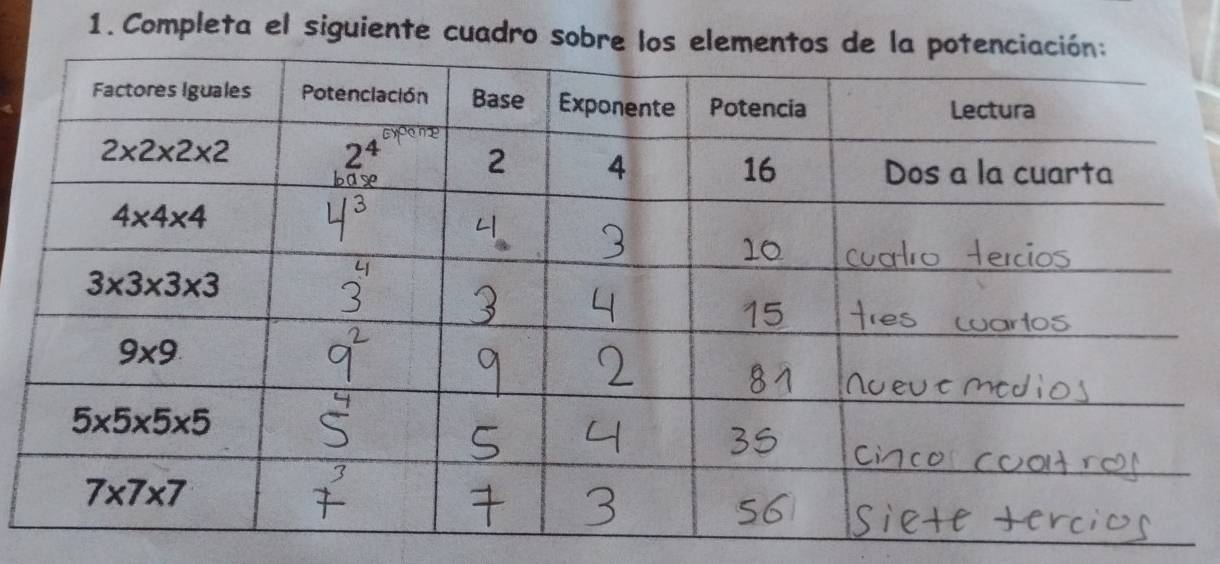 1. Completa el siguiente cuadro sobre los elementos de la potenciación:
Factores Iguales Potenciación Base Exponente Potencia Lectura
2x2x2x2 2⁴ 2 4 16 Dos a la cuarta
base
4x4x4 4³ 4 3 10 cuatro tercios
3x3x3x3 3⁴ 3 4 15 tres cuartos
9x9 9² 9 2 81 nueve medios
5x5x5x5 5⁴ 5 4 35 cinco cuatros
7x7x7 7³ 7 3 56 siete tercios